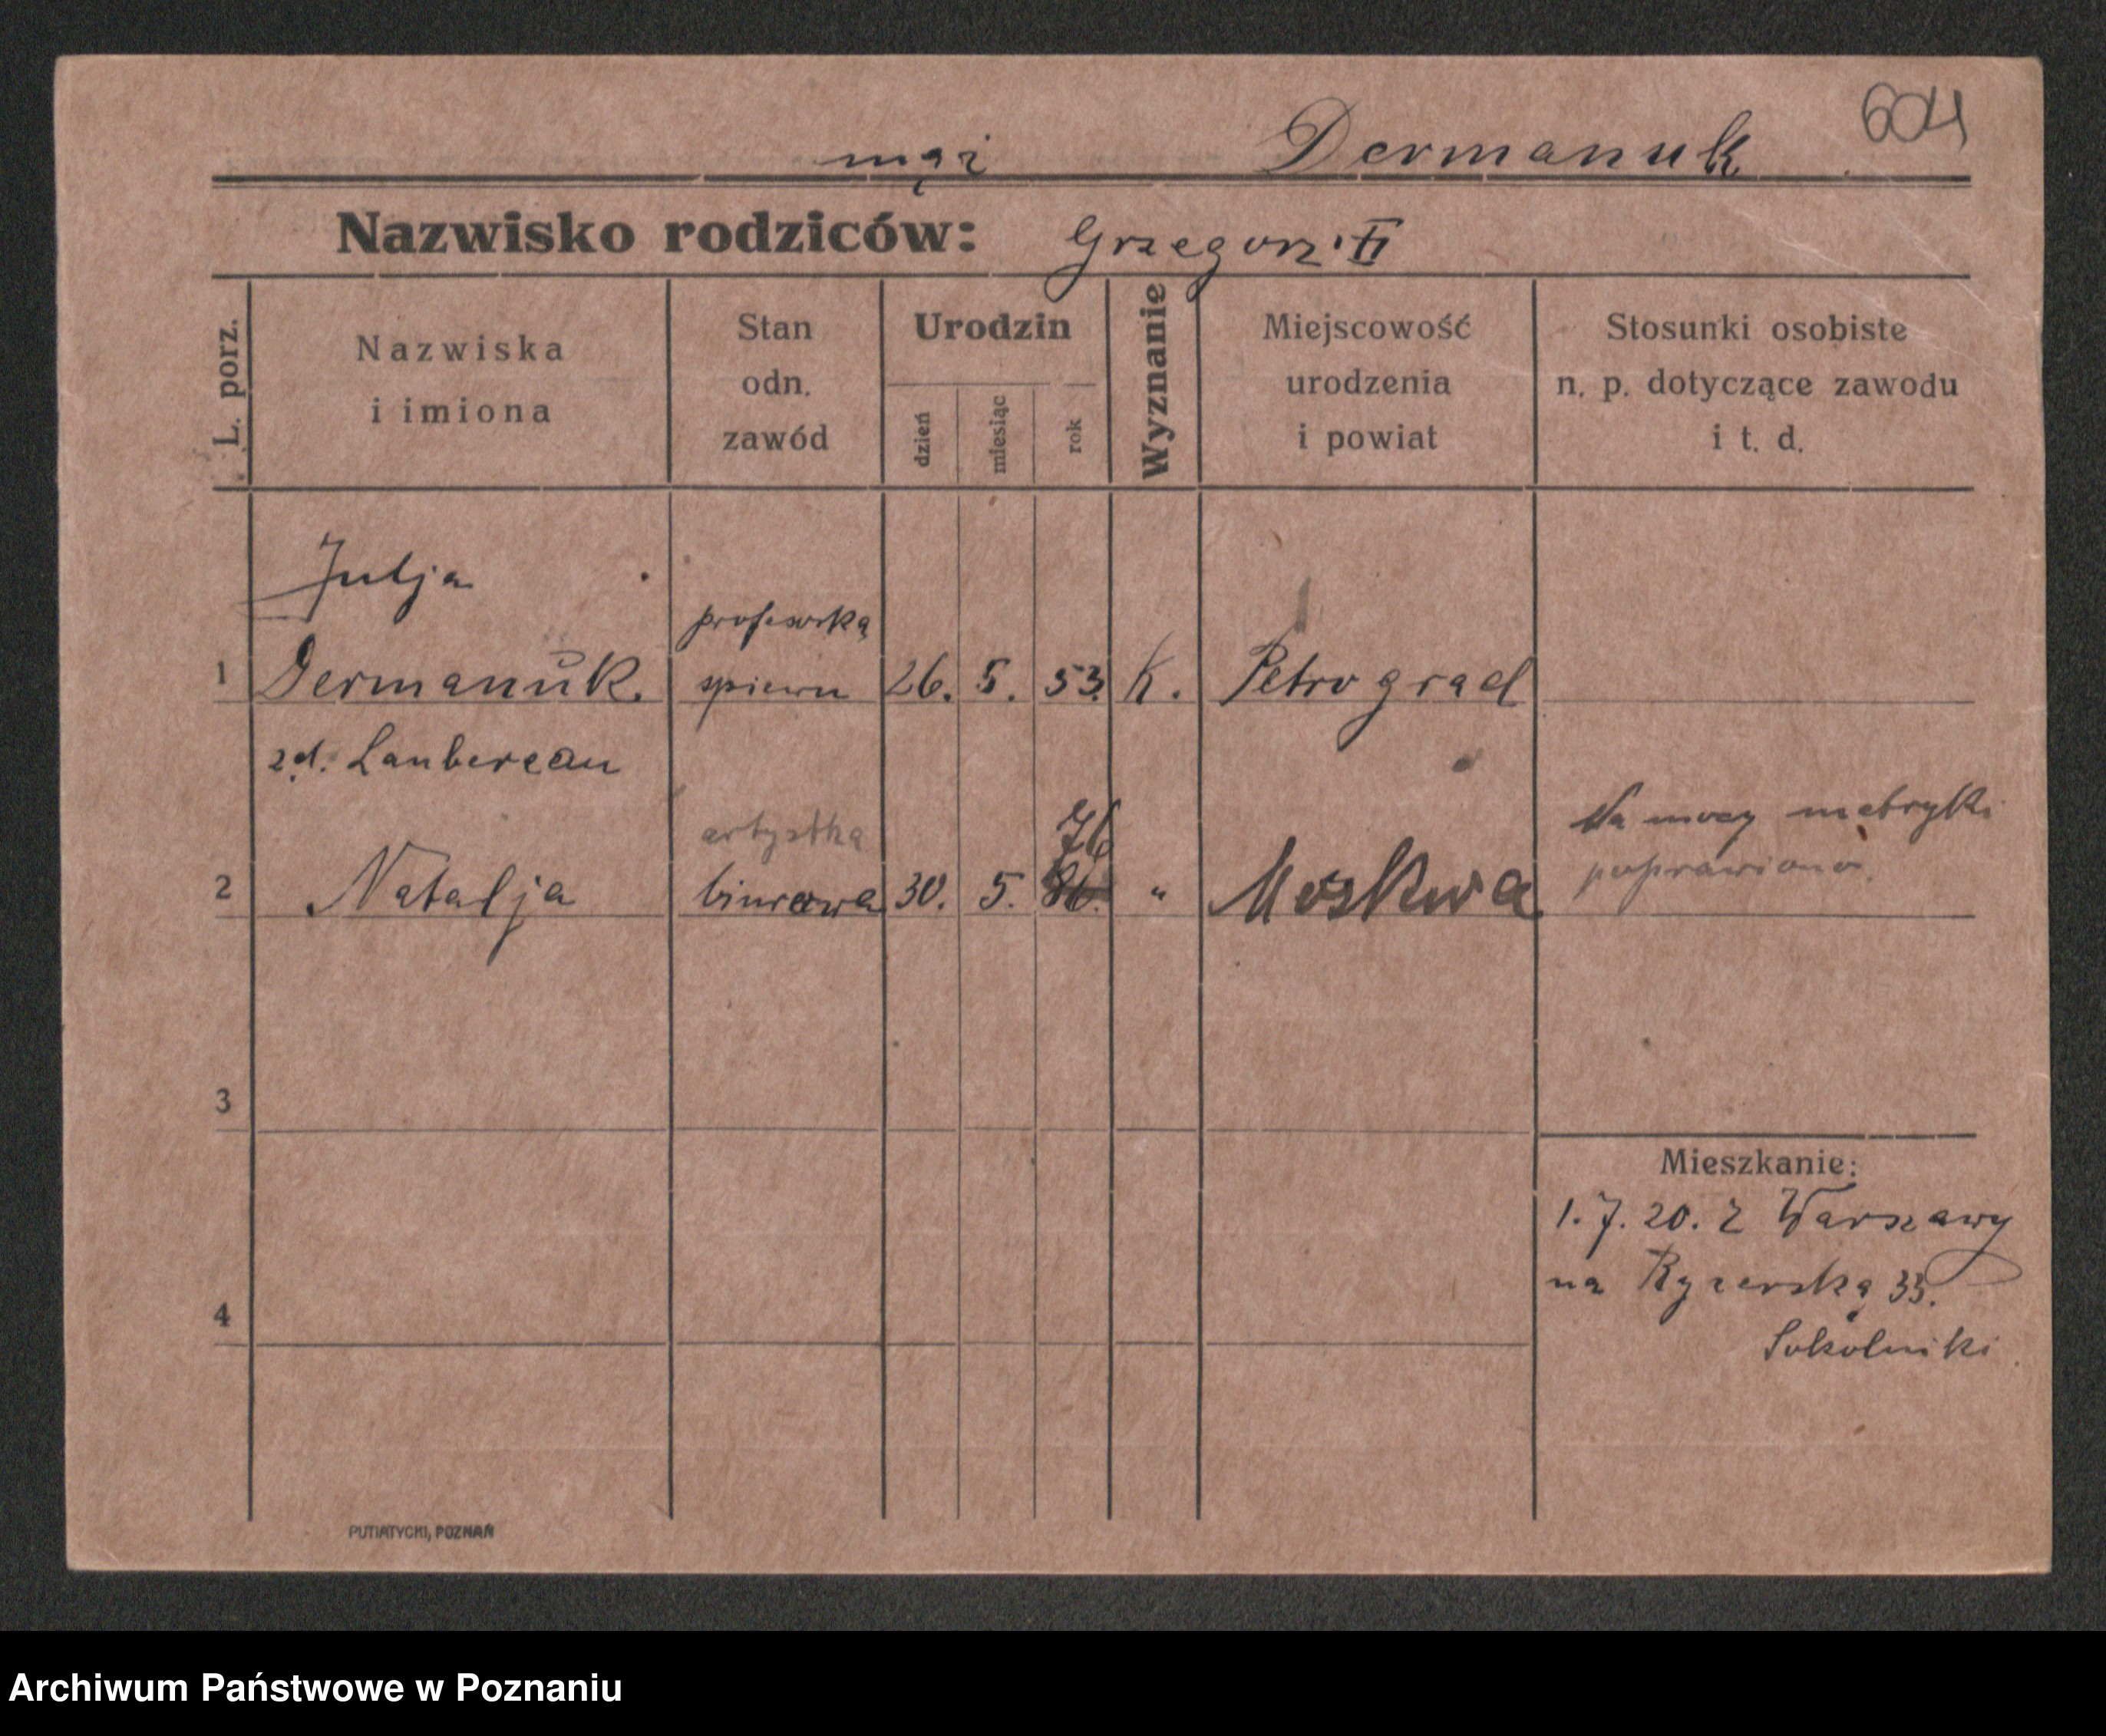 604
mąż Dermanuk
Nazwisko rodziców: Grzegorz II
L. porz.
Nazwiska
i imiona
Stan
odn.
zawód
Urodzin
dzień
miesiąc
rok
Wyznanie
Miejscowość
urodzenia
i powiat
Stosunki osobiste
n. p. dotyczące zawodu
i t. d.
Julja
profesorka
1 Dermanuk. spiewu 26. 5. 53. K. Petrograd
zd. Laubereau
artystka 76 Na mocy metryki
2 Natalja biurowa 30. 5. 86. " Moskwa poprawiono.
3
Mieszkanie:
1.7.20. Z Warszawy
na Rycerską 33.
4
Sokolniki
PUTIATYCKI, POZNAŃ
Archiwum Państwowe w Poznaniu